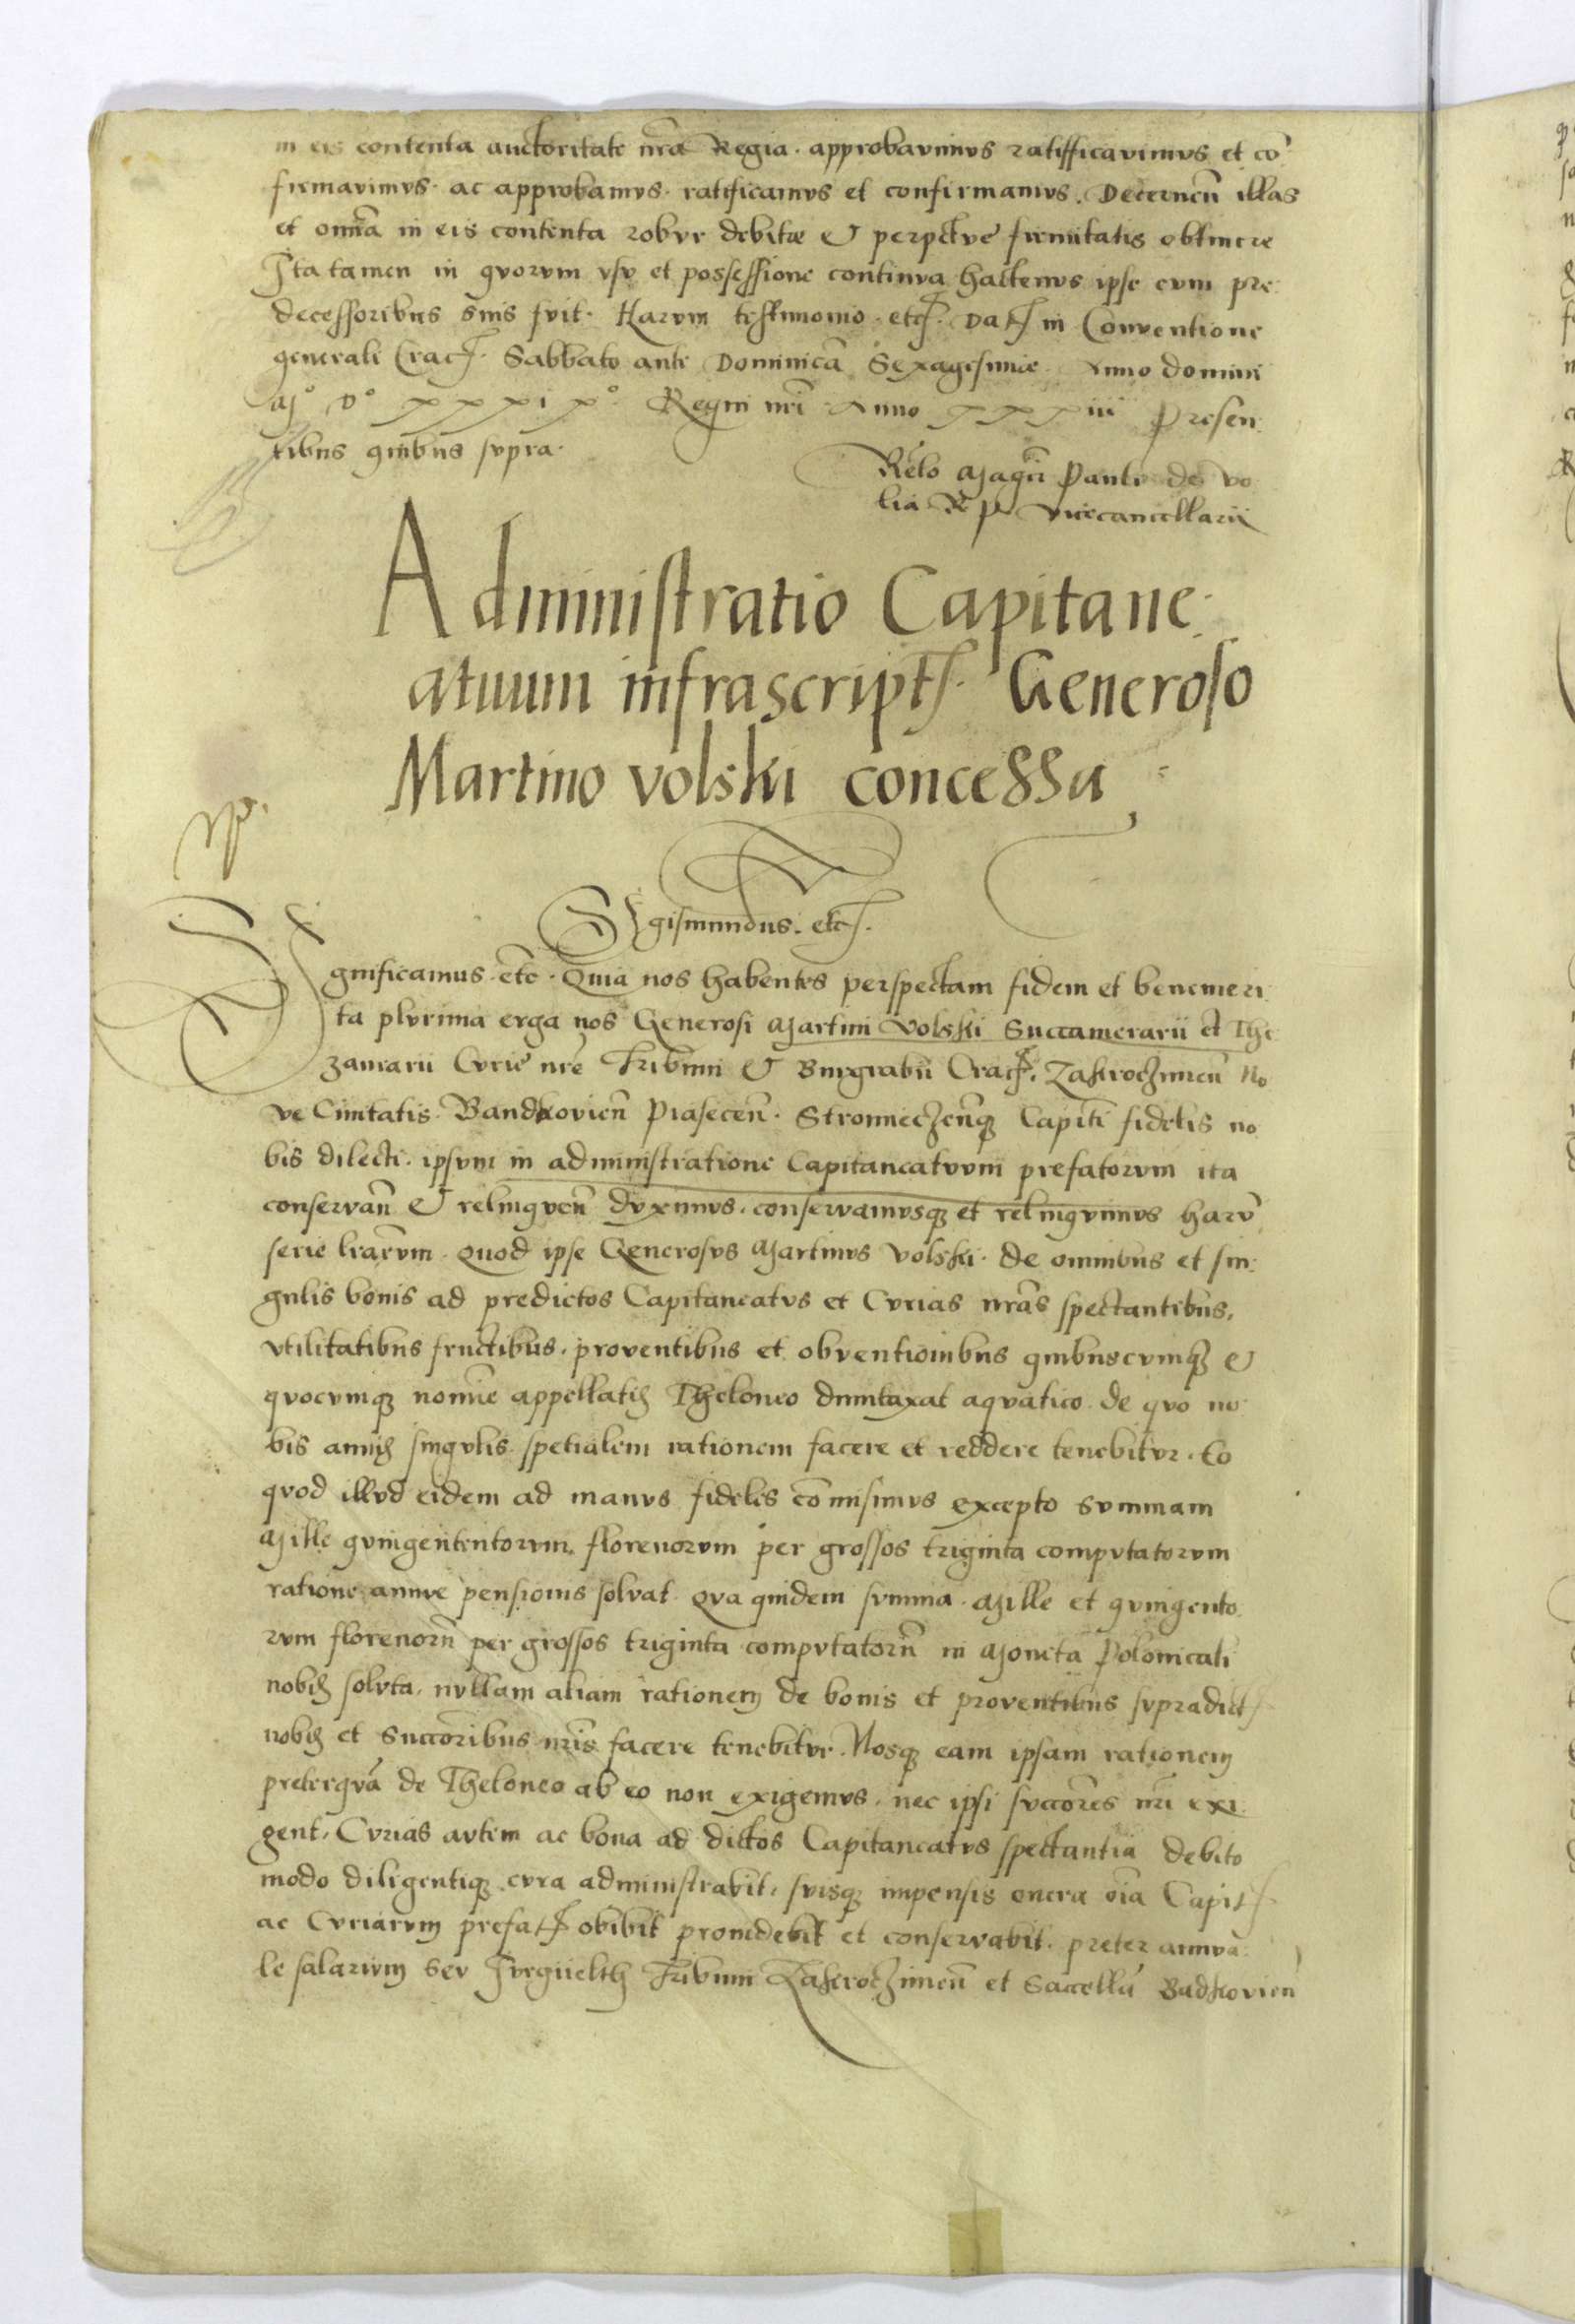 in eis contenta auctoritate nrã Regia. approbavimvs ratifficavimvs et cõ
firmavimvs. ac approbamvs. ratificamvs et confirmamvs. Decerneñ illas
et omĩa in eis contenta robvr debitæ & perpetve firmitatis obtinere
Ita tamen in qvorvm vsv et possessione continva hactenvs ipse cvm pre
decessoribus suis fvit. Harvm testimonio. etc. Dat in Conventione
generali Crac. Sabbato ante Dominicã Sexagesimæ. Anno domini
Mº Dº xxxixº Regni nri Anno xxxiii Presen
tibus quibus svpra.
Relõ Magci Pauli de vo
lia R P. vicecancellarii
Administratio Capitane
atuum infrascript. Generoso
Martino volski concessa
Sigismundus. etc.
Significamus. etc. Quia nos habentes perspectam fidem et benemeri
ta plvrima erga nos Generosi Martini Volski Succamerarii et The
zaurarii Cvrie nrẽ Tribuni & Burgrabii Crac. Zakroczimeñ No
ve Civitatis. Bandkovieñ Piaseceñ. Stromieczeñq Capitĩ fidelis no
bis dilecti. ipsvm in administratione Capitaneatvvm prefatorvm ita
conservañ & relinqveñ dvximvs. conservamvsq et relinqvimvs harũ
serie lrarvm. Quod ipse Generosvs Martinvs Volski. de omnibus et sin
gulis bonis ad predictos Capitaneatvs et Cvrias nrãs spectantibus.
vtilitatibus fructibus. proventibus et obventionibus quibuscvmq &
qvocvmq nomine appellatis Theloneo dumtaxat aqvatico de qvo no
bis annis singvlis spetialem rationem facere et reddere tenebitvr. Eo
qvod illvd eidem ad manvs fideles cõmisimvs excepto Svmmam
Mille qvingententorvm florenorvm per grossos triginta compvtatorvm
ratione annve pensionis solvat. Qva quidem svmma. Mille et qvingento
rvm florenorũ per grossos triginta compvtatorũ in Moneta Polonicali
nobis solvta. nvllam aliam rationem de bonis et proventibus svpradict
nobis et Succoribus nris facere tenebitvr. Nosq eam ipsam rationem
preterqvã de Theloneo ab eo non exigemvs. nec ipsi svccores nri exi
gent. Cvrias avtem ac bona ad dictos Capitaneatvs spectantia debito
modo diligentiq cvra administrabit. svisq impensis onera oĩa Capit
ac Cvriarvm prefat obibit providebit et conservabit. preter annva
le salarivm Sev Jvrgüelth Tribuni Zakroczimeñ et Saccellã Badkovieñ